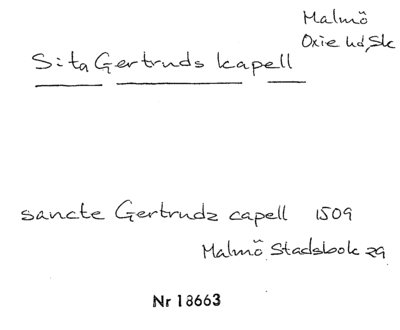 Malmö
Oxie hd, Sk
S:ta Gertruds kapell
sancte Gertrudz capell 1509
Malmö Stadsbok 29
Nr 18663